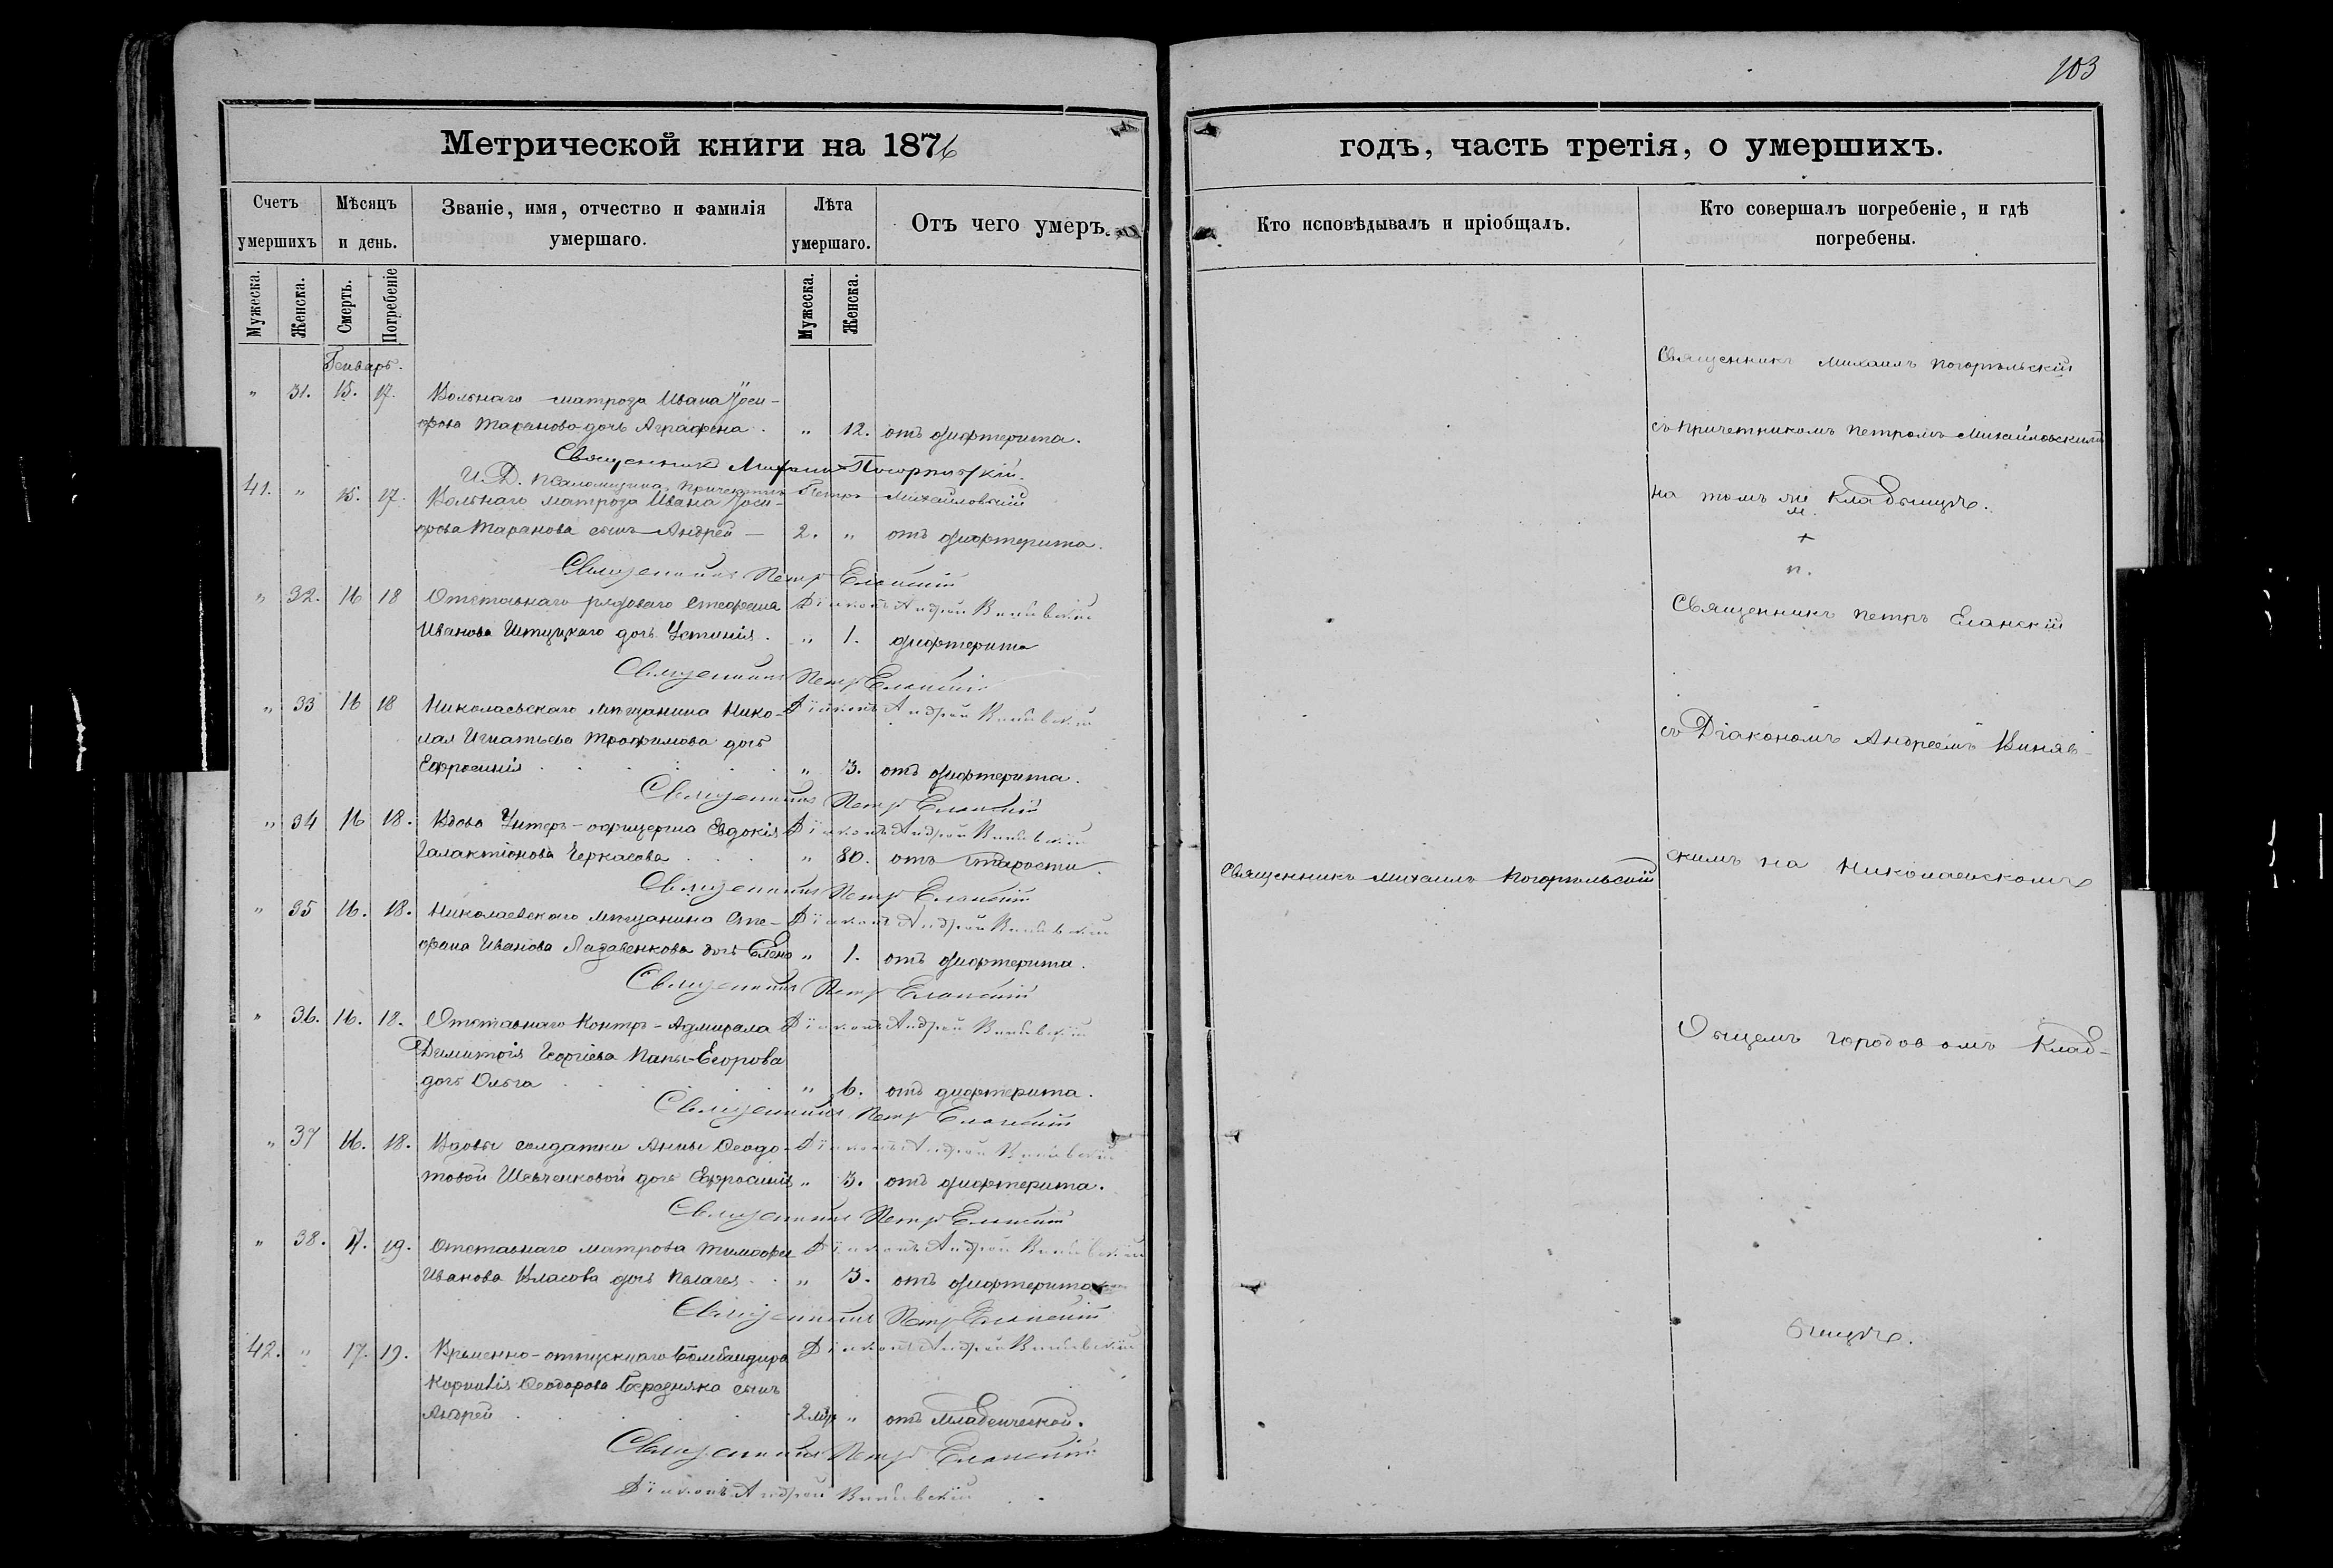 103
Метрической книги на 1876
годъ, часть третія, о умершихъ.
Счетъ умершихъ
Мѣсяцъ и день.
Званіе, имя, отчество и фамилія умершаго.
Лѣта умершаго.
Отъ чего умеръ.
Кто исповѣдывалъ и пріобщалъ.
Кто совершалъ погребеніе, и гдѣ погребены.
Мужеска.
Женска.
Смерть.
Погребеніе
Мужеска.
Женска.
Генварь.
" 31. 15. 17. Вольнаго матроза Ивана Іоси-
фова Таранова дочь Аграфена. " 12. отъ дифтерита.
Священникъ Михаилъ Погорѣльскій.
И. Д. Псаломщика, Причетникъ Петръ Михайловскій
41. " 15. 17. Вольнаго матроза Ивана Іоси-
фова Таранова сынъ Андрей — 2. " отъ дифтерита.
Священникъ Петръ Еланскій
Діаконъ Андрей
" 32. 16 18 Отставнаго рядоваго Стефана
Иванова дочь Устинія. " 1. дифтерита
Священникъ Петръ Еланскій
Діаконъ Андрей
" 33 16 18 Николаевскаго мѣщанина Нико-
лая Игнатьева Трофимова дочь
Ефросинія " 3. отъ дифтерита.
Священникъ Петръ Еланскій
Діаконъ Андрей
" 34 16 18. Вдова Унтеръ-офицерша Евдокія
Галактіонова Черкасова " 80. отъ старости.
Священникъ Петръ Еланскій
Діаконъ Андрей
" 35 16. 18. Николаевскаго мѣщанина Сте-
фана Иванова дочь Елена " 1. отъ дифтерита.
Священникъ Петръ Еланскій
Діаконъ Андрей
" 36. 16. 18. Отставнаго Контръ-Адмирала
Димитрія Георгіева Папы-Егорова
дочь Ольга " 6. отъ дифтерита.
Священникъ Петръ Еланскій
Діаконъ Андрей
" 37 16. 18. Вдовы солдатки Анны Ѳеодо-
товой Шевченковой дочь Ефросинія " 3. отъ дифтерита.
Священникъ Петръ Еланскій
Діаконъ Андрей
" 38. 17. 19. Отставнаго матроза Тимоѳея
Иванова Власова дочь Пелагея " 3. отъ дифтерита
Священникъ Петръ Еланскій
Діаконъ Андрей
42. " 17. 19. Временно-отпускнаго Бомбандира
Корнилія Ѳеодорова Березняка сынъ
Андрей 2 мѣс. " отъ младенческой.
Священникъ Петръ Еланскій
Діаконъ Андрей
Священникъ Михаилъ Погорѣльскій
Священникъ Михаилъ Погорѣльскій
съ причетникомъ Петромъ Михайловскимъ
на томъ же кладбищѣ.
Священникъ Петръ Еланскій
съ Діакономъ Андреемъ
скимъ на Николаевскомъ
кLAД-
бищѣ.